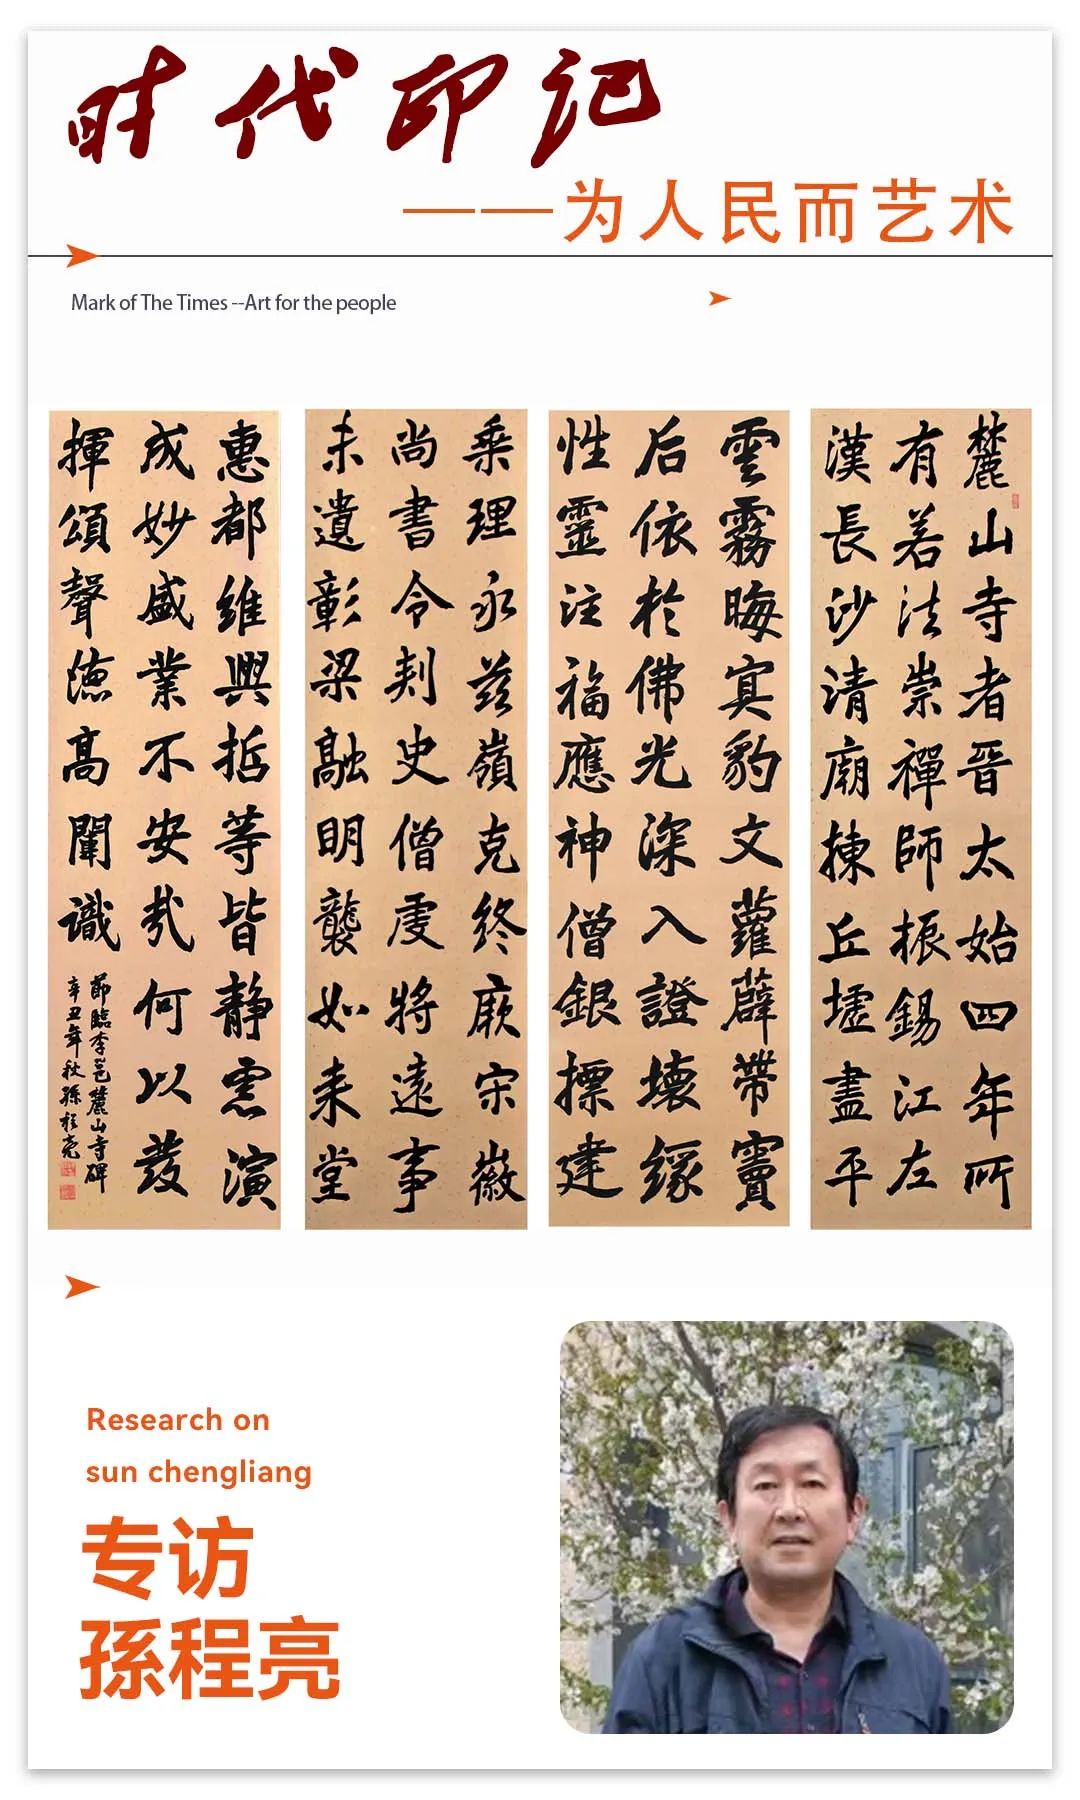 时代印记
——为人民而艺术
Mark of The Times --Art for the people
麓山寺者晉太始四年所
有若法崇禪師振錫江左
漢長沙清廟揀丘墟盡平
雲霧晦冥豹文蘿薜帶竇
后依於佛光深入證壞緣
性靈注福應神僧銀摽建
乘理永茲嶺克終厥宋徽
尚書令刾史僧虔將遠事
未遺彰梁融明襲如来堂
惠都維興哲等皆静慮演
成妙盛業不安哉何以發
揮頌聲德高闡識
節臨李邕麓山寺碑
辛丑年秋孫程亮
Research on
sun chengliang
专访
孫程亮